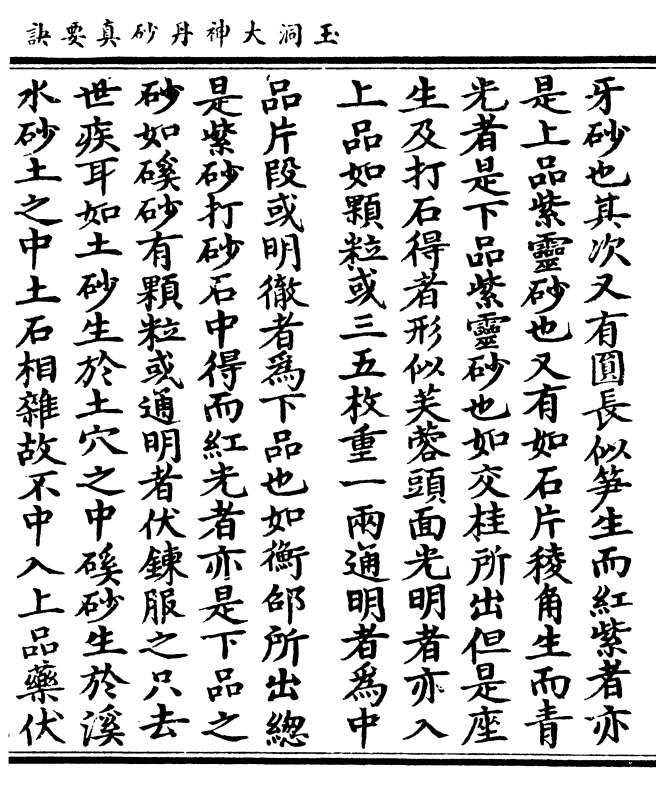 玉洞大神丹砂真要訣
牙砂也其次又有圓長似笋生而紅紫者亦
是上品紫靈砂也又有如石片稜角生而青
光者是下品紫靈砂也如交桂所出但是座
生及打石得者形似芙蓉頭面光明者亦入
上品如顆粒或三五枚重一兩通明者爲中
品片段或明徹者爲下品也如衡邵所出總
是紫砂打砂石中得而紅光者亦是下品之
砂如磎砂有顆粒或通明者伏鍊服之只去
世疾耳如土砂生於土穴之中磎砂生於溪
水砂土之中土石相雜故不中入上品藥伏